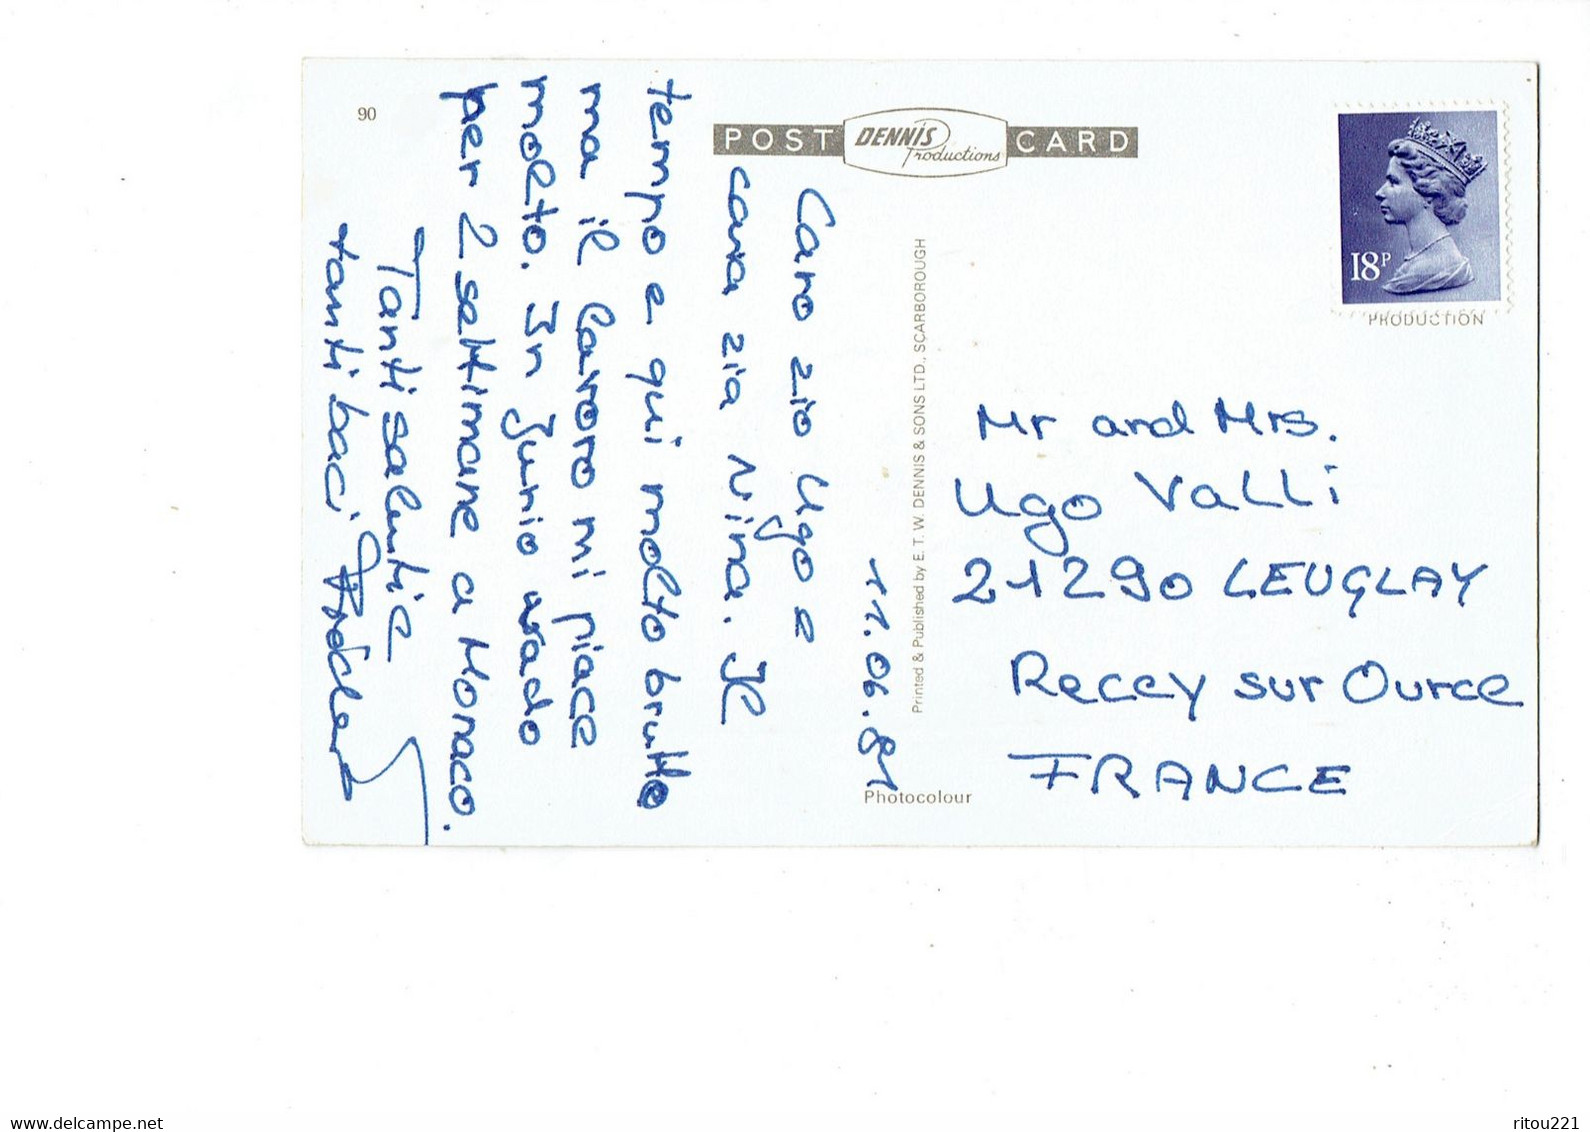 90
POST DENNIS Productions CARD
18P
PRODUCTION
11.06.81
Caro zio Ugo e
cara zia Nina. Il
tempo e qui molto brutto
ma il lavoro mi piace
molto. In Junio vado
per 2 settimane a Monaco.
Tanti saluti e
tanti baci
Printed & Published by E. T. W. DENNIS & SONS LTD., SCARBOROUGH
Photocolour
Mr and Mrs.
Ugo Valli
21290 LEUGLAY
Recey sur Ource
FRANCE
www.delcampe.net
ritou221